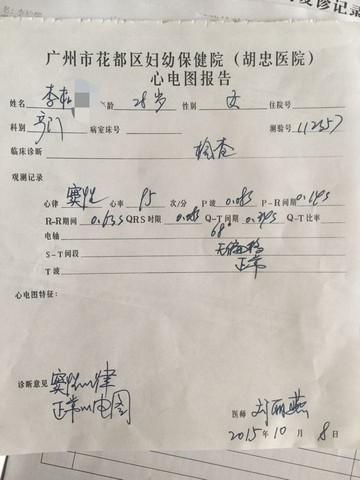 诊记录
广州市花都区妇幼保健院（胡忠医院）
心电图报告
姓名 李 年龄 28岁 性别 女 住院号
科别 门 病室床号 测验号 112357
临床诊断 检查
观测记录
心律 窦性 心率 95 次/分 P波 0.08s P-R间期 0.14s
R-R期间 0.63s QRS时限 0.08s Q-T间期 0.34s Q-T比率
电轴 68°
S-T间段 无偏移
T波 正常
心电图特征：
诊断意见 窦性心律
正常心电图
医师 刘丽燕
2015年10月8日